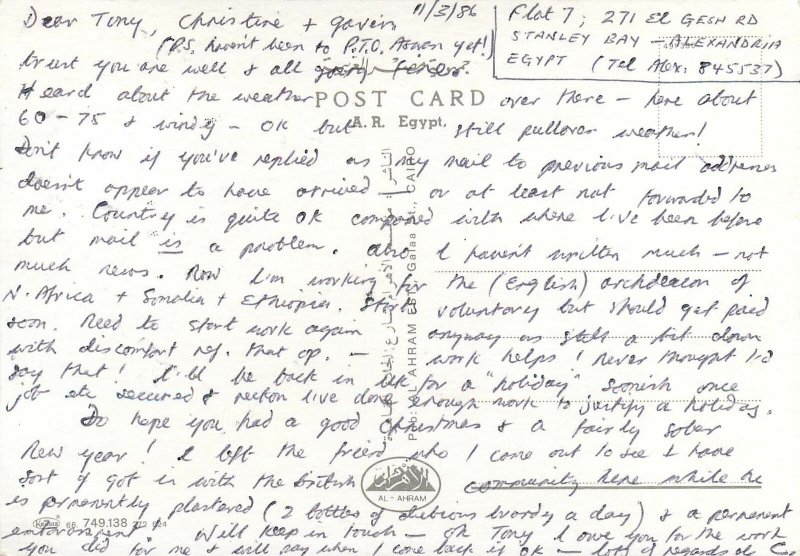 Dear Tony, Christine + Gavin 11/3/86
Flat 7, 271 El GESH RD
STANLEY BAY - ALEXANDRIA
EGYPT (Tel Alex: 845537)
(P.S. haven't been to P.T.O. Aswan yet!)
trust you are well & all
Heard about the weather over there - here about
POST CARD
A. R. Egypt.
60-75 & windy - OK but still pullover weather!
Don't know if you've replied as my mail to previous mail addresses
doesn't appear to have arrived or at least not forwarded to
me. Country is quite OK compared with where I've been before
but mail is a problem. Also I haven't written much - not
much news. Now I'm working for the (English) archdeacon of
N. Africa + Somalia + Ethiopia. Start voluntary but should get paid
soon. Need to start work again anyway as still a bit down
with discomfort ref. that op. - work helps! Never thought I'd
say that! I'll be back in UK for a "holiday" soonish once
job etc secured & reckon I've done enough work to justify a holiday.
Do hope you had a good Christmas & a fairly sober
New year! I left the friend who I came out to see & have
sort of got in with the British community here while he
is permanently plastered (2 bottles of dubious brandy a day) & a permanent
Will keep in touch - oh Tony I owe you for the work
you did for me & will pay when I come back if OK - lots of regards C
Pub: AL AHRAM EST. Galaa St., CAIRO
AL - AHRAM
749.138